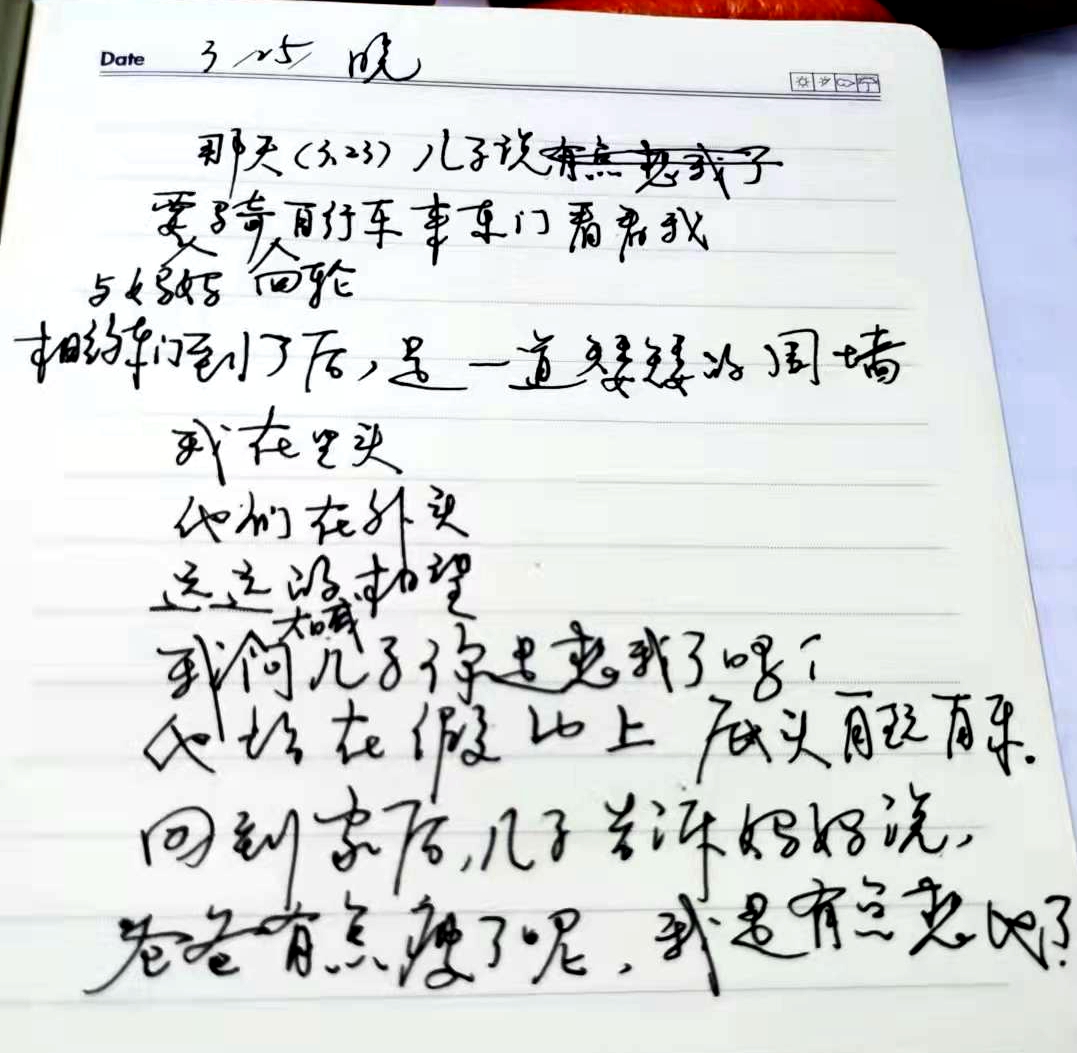 Date 3/25/ 晚
那天(3.23)儿子说有点想我了
要骑自行车来东门看看我
与妈妈 四轮
相约东门到了后,是一道矮矮的围墙
我在里头
他们在外头
远远的相望
大喊
我问儿子你是想我了吗?
他站在假山上 底头自玩自乐.
回到家后,儿子告诉妈妈说,
爸爸有点瘦了呢,我是有点想他了.